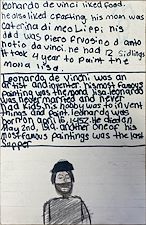 leonardo de vinci liked food.
he also liked crafting. his mom was
caterina di meo Lippi his
dad was piero frvosino d anto
notio da vinci. he had 12 sidlings
it took 4 year to paint the
mona lisa.
Leonardo de vinchi was an
artist and inventer. his most famous
painting was the mona lisa. leonardo
was never married and never
had kids. his hobby was to invent
things and paint. leonardo was
born on april 15, 1452. He died on
May 2nd, 1519. another one of his
most famous paintings was the last
supper